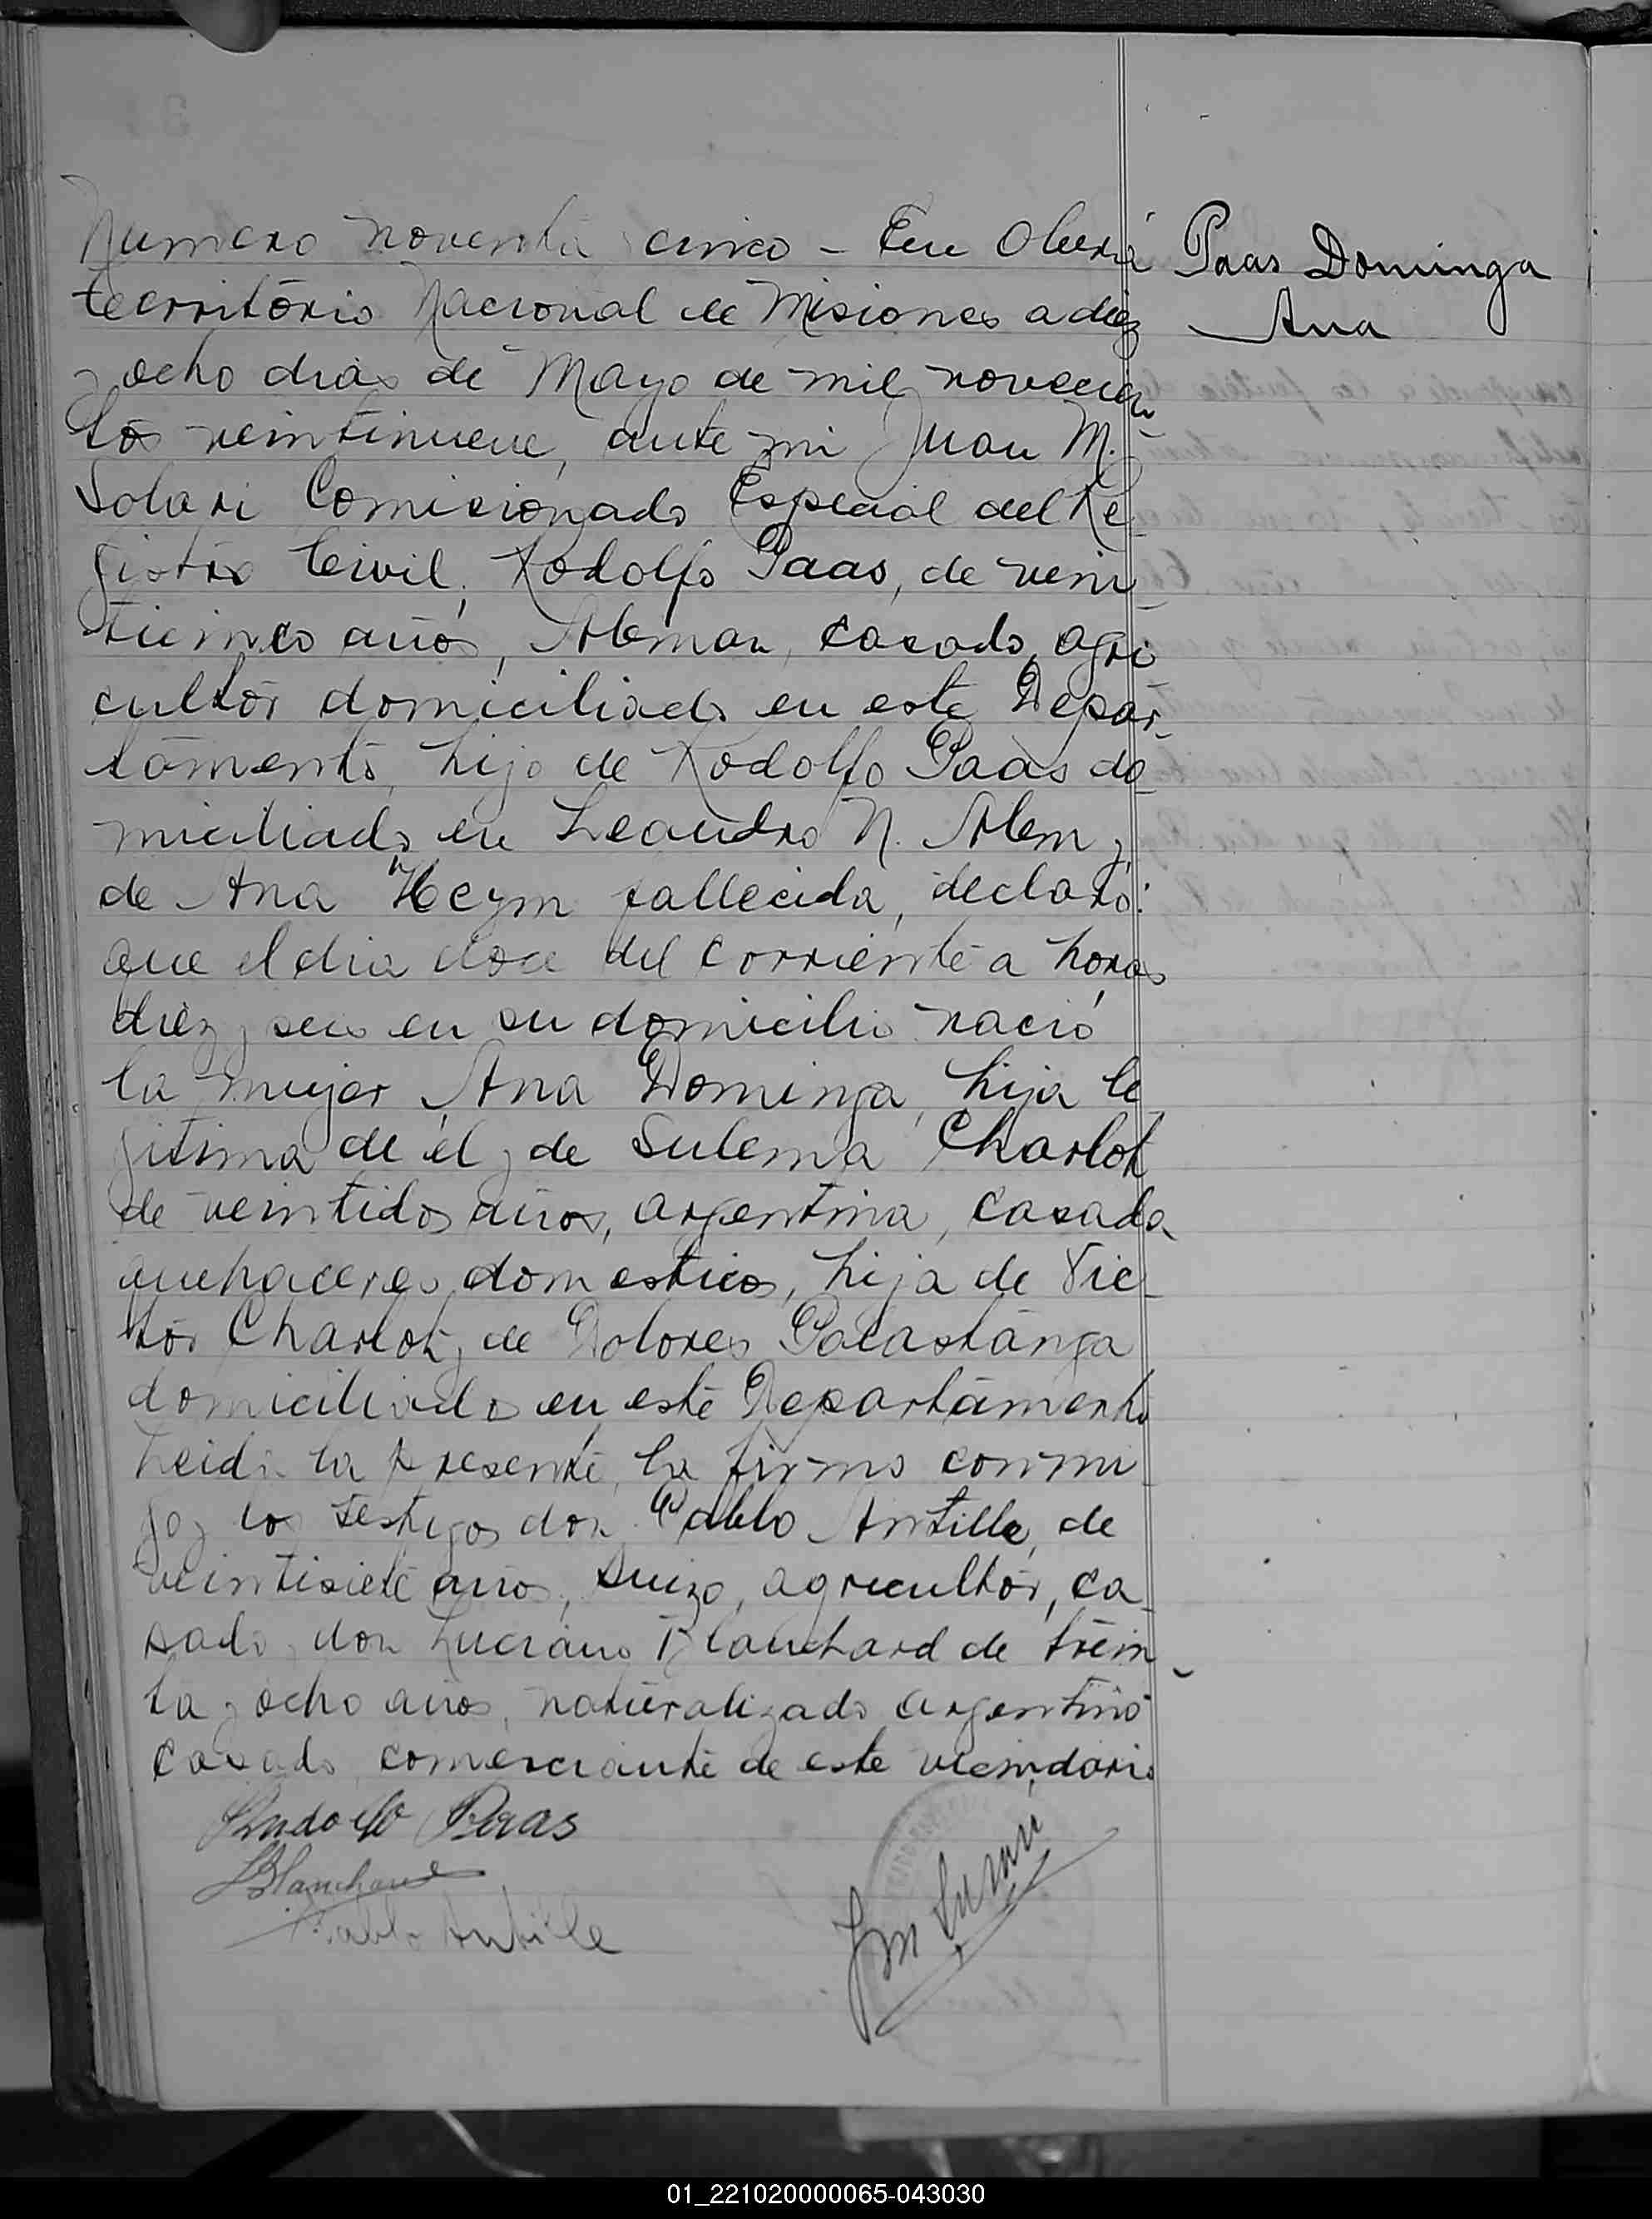 Numero noventa y cinco - En Oberá
territorio Nacional de Misiones a diez
y ocho dias de Mayo de mil novecien
tos veintinueve, ante mi Juan M.
Solari Comisionado Especial del Re
gistro Civil, Rodolfo Paas, de vein
ticinco años, Aleman, casado, agri
cultor domiciliado en este Depar-
tamento, hijo de Rodolfo Paas do
miciliado en Leandro N. Alem y
de Ana Heym fallecida, declaró:
que el dia doce del corriente a horas
diez y seis en su domicilio nació
la mujer Ana Dominga, hija le
gitima de él y de Sulema Charlot
de veintidos años, argentina, casada
quehaceres domesticos, hija de Vic
tor Charlot y de Dolores Palastanga
domiciliados en este Departamento
Leida la presente, la firmo conmi
go y los testigos don Pablo Antille, de
veintisiete años, suizo, agricultor, ca
sado y don Luciano Blanchard de trein
ta y ocho años, naturalizado argentino
casado, comerciante de este vecindario
Paas Dominga
Ana
Rudolfo Paas
LBlanchard
Pablo Antille
JM Solari
01_221020000065-043030